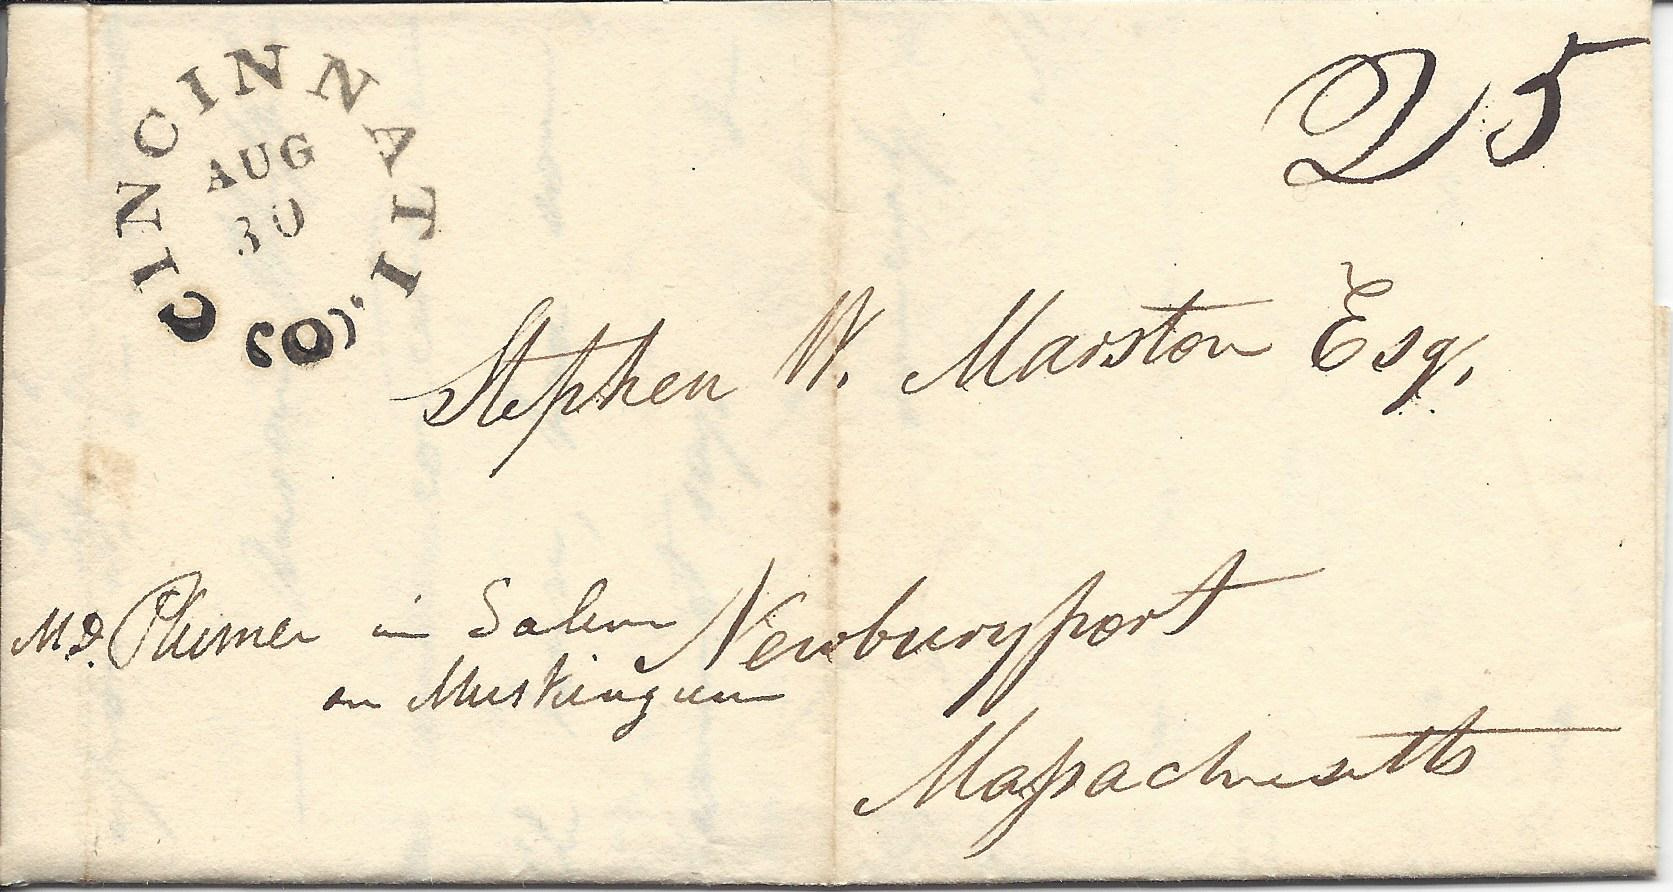 CINCINNATI. (O)
AUG
30
25
Stephen W. Marston Esq,
Newburyport
Maſsachusetts
Md. Plumer in Salem
on Muskingum